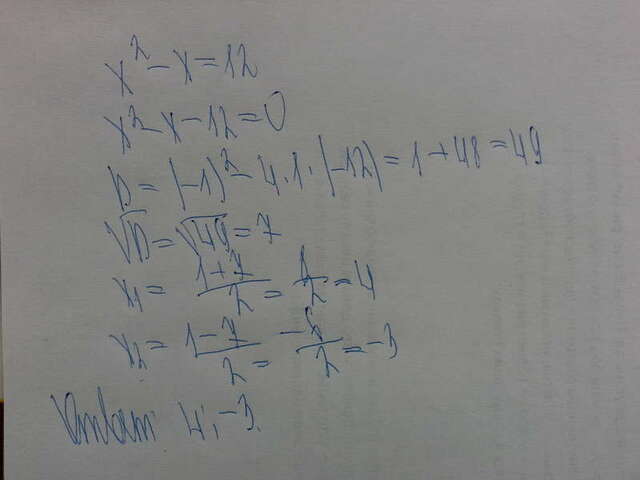 x² - x = 12
x² - x - 12 = 0
D = (-1)² - 4 · 1 · (-12) = 1 + 48 = 49
√D = √49 = 7
x₁ = (1+7)/2 = 8/2 = 4
x₂ = (1-7)/2 = -6/2 = -3
Ответ: 4; -3.